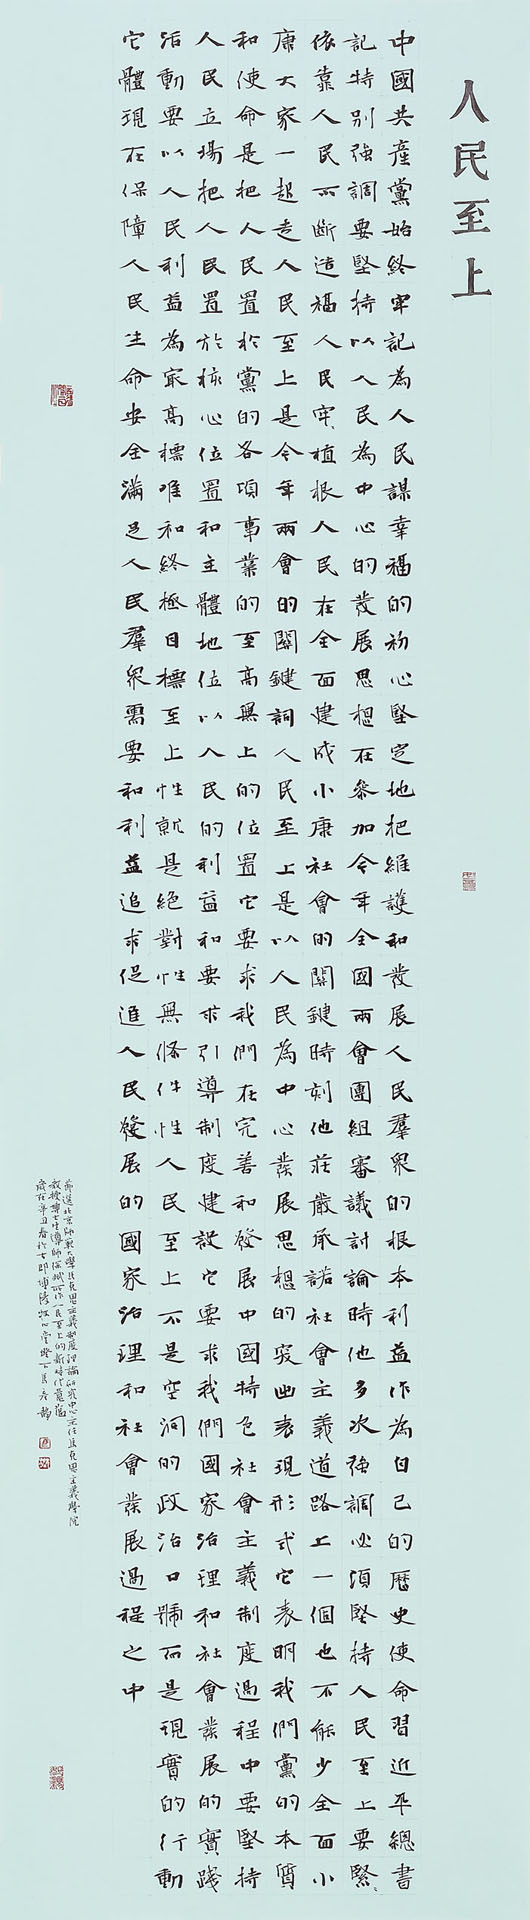 人民至上
中國共產黨始終牢記為人民謀幸福的初心堅定地把維護和發展人民羣衆的根本利益作為自己的歷史使命習近平總書
記特别強調要堅持以人民為中心的發展思想在參加今年全國兩會團組審議討論時他多次強調必須堅持人民至上要緊、
依靠人民不斷造福人民牢、植根人民在全面建成小康社會的關鍵時刻他莊嚴承諾社會主義道路上一個也不能少全面小
康大家一起走人民至上是今年兩會的關鍵詞人民至上是以人民為中心發展思想的突出表現形式它表明我們黨的本質
和使命是把人民置於黨的各項事業的至高無上的位置它要求我們在完善和發展中國特色社會主義制度過程中要堅持
人民立場把人民置於核心位置和主體地位以人民的利益和要求引導制度建設它要求我們國家治理和社會發展的實踐
活動要以人民利益為最高標准和終極目標至上性就是絕對性無條件性人民至上不是空洞的政治口號而是現實的行動
它體現在保障人民生命安全滿足人民羣衆需要和利益追求促進人民發展的國家治理和社會發展過程之中
節選北京師範大學馬克思主義制度理論研究中心主任馬克思主義學院
教授博士生導師徐斌所作人民至上的新時代意蘊
歲在辛丑春於牧心堂